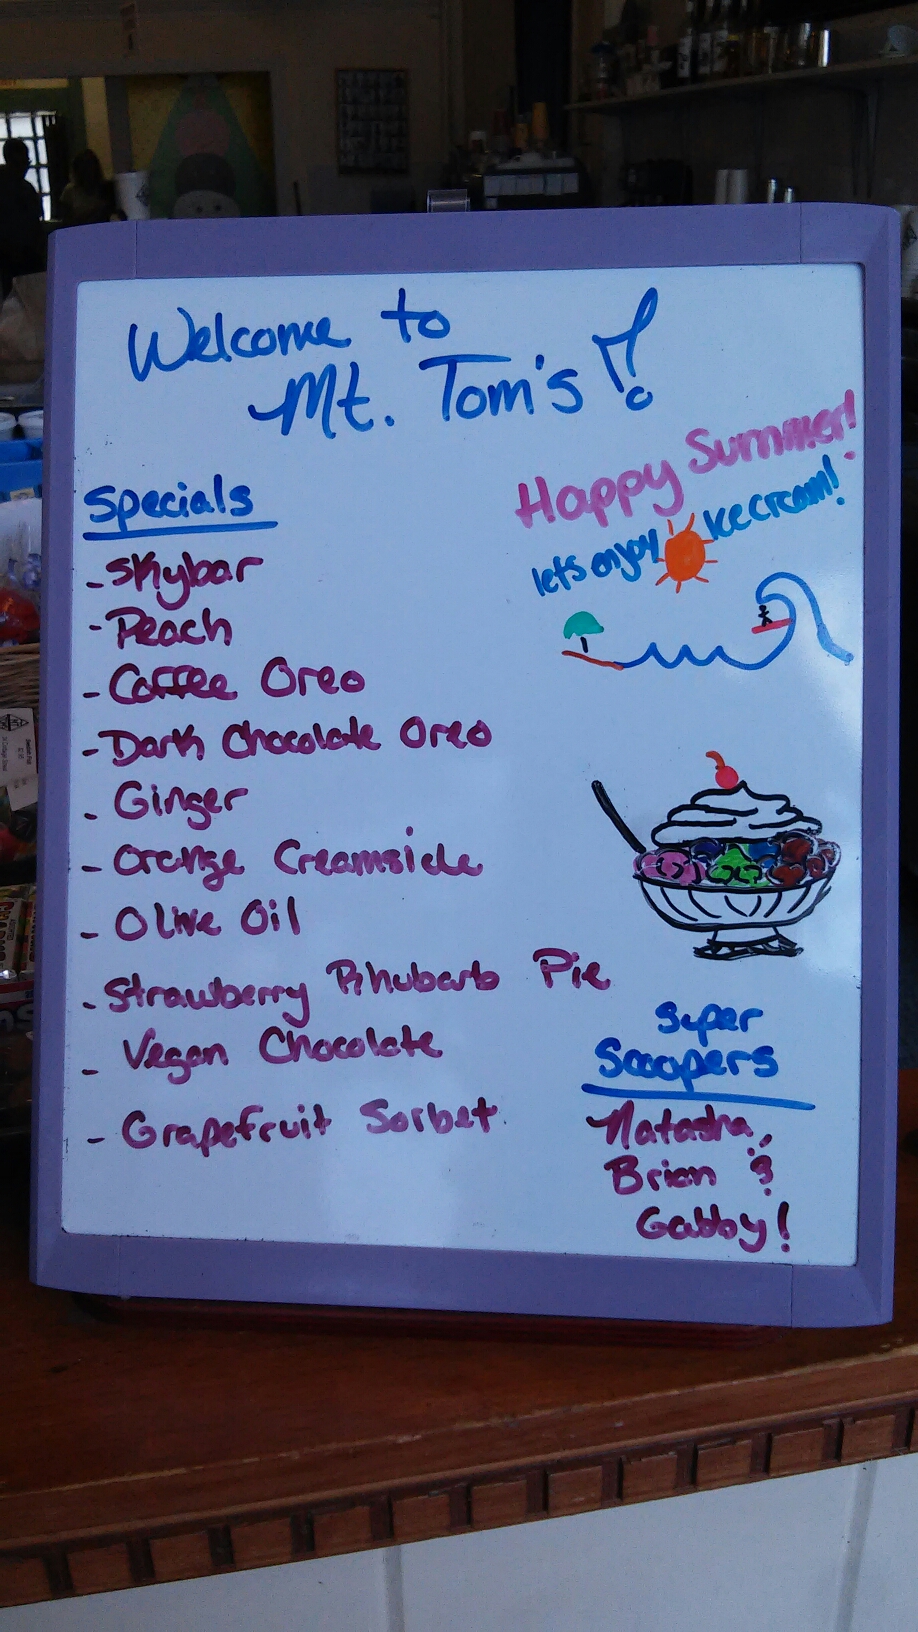 Welcome to
Mt. Tom's!
Happy Summer!
let's enjoy Ice cream!
Specials
- Skybar
- Peach
- Coffee Oreo
- Dark Chocolate Oreo
- Ginger
- Orange Creamsicle
- Olive Oil
- Strawberry Rhubarb Pie
- Vegan Chocolate
- Grapefruit Sorbet
Super
Scoopers
Natasha,
Brian &
Gabby!